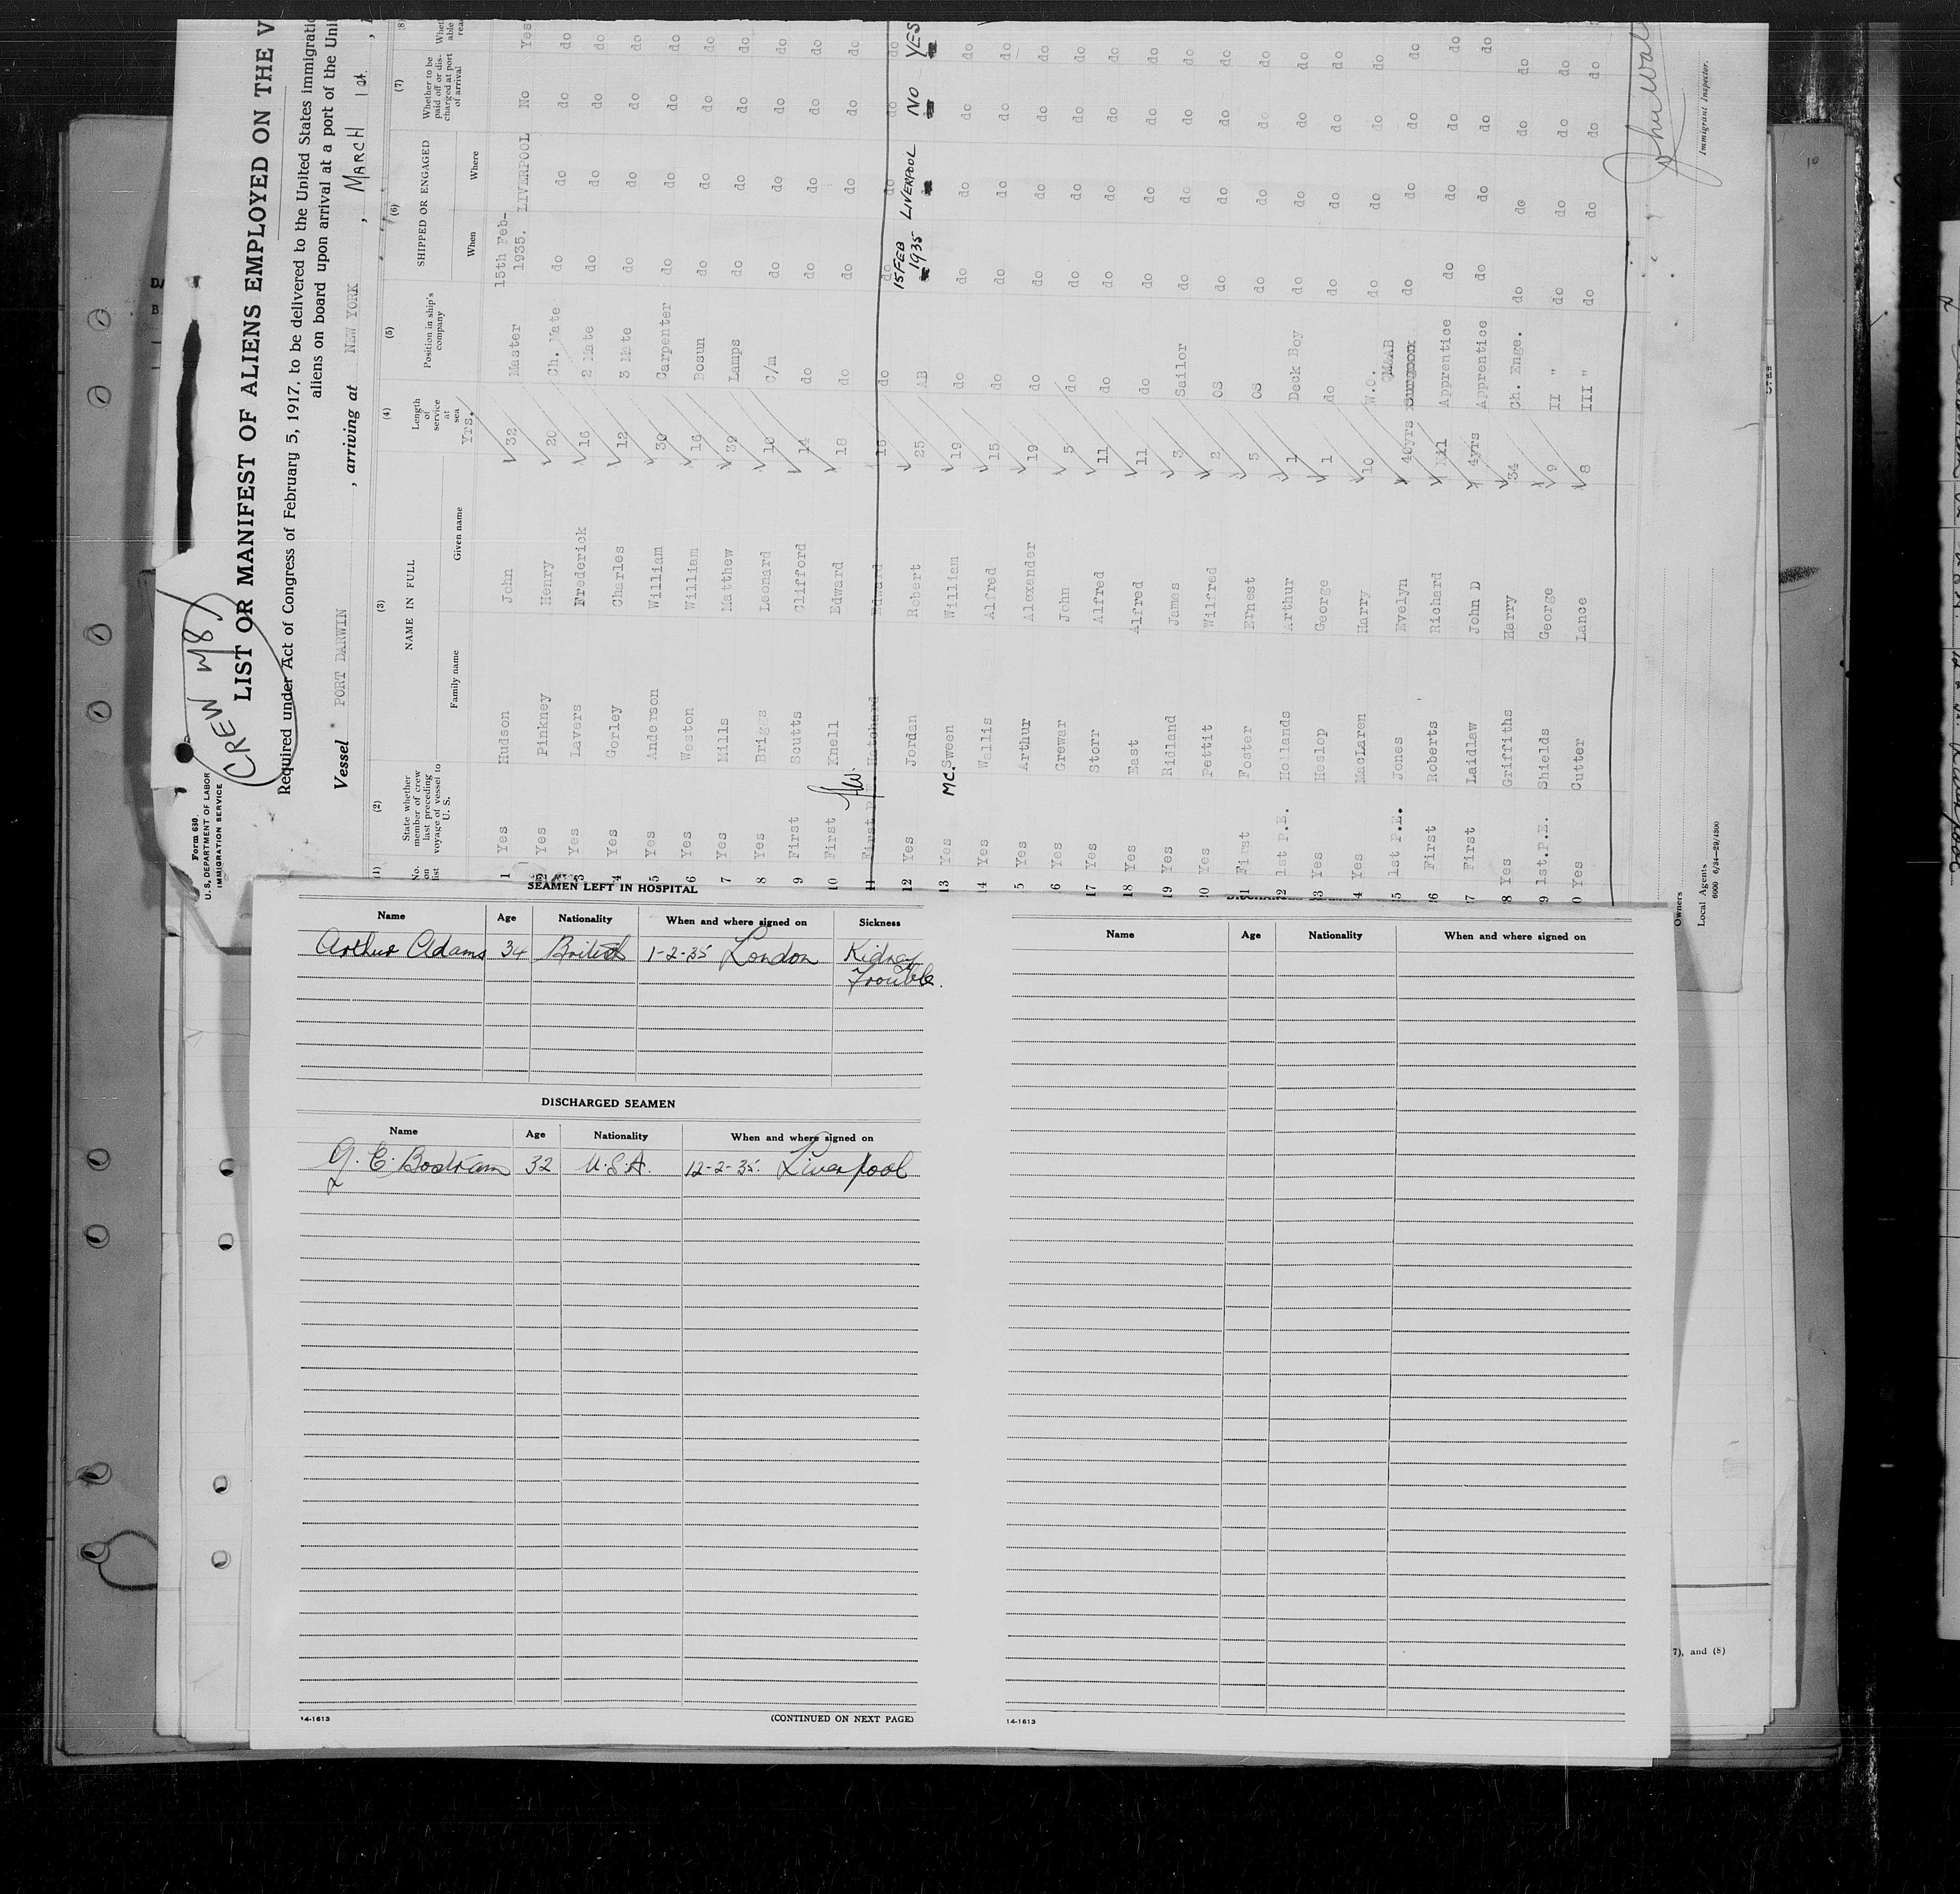 Form 680
U. S. DEPARTMENT OF LABOR
IMMIGRATION SERVICE
CREW
LIST OR MANIFEST OF ALIENS EMPLOYED ON THE V
Required under Act of Congress of February 5, 1917, to be delivered to the United States immigrati
aliens on board upon arrival at a port of the Uni
Vessel PORT DARWIN, arriving at NEW YORK, MARCH 1st,
(1) (2) (3) (4) (5) (6) (7) (8)
No. on list State whether member of crew last preceding voyage of vessel to U. S. NAME IN FULL Family name Given name Length of service at sea Position in ship's company SHIPPED OR ENGAGED When Where Whether to be paid off or discharged at port of arrival
Yrs.
1 Yes Hudson John 32 Master 15th Feb-1935. LIVERPOOL No Yes
2 Yes Pinkney Henry 20 Ch. Mate do do do do
3 Yes Lavers Frederick 16 2 Mate do do do do
4 Yes Gorley Charles 12 3 Mate do do do do
5 Yes Anderson William 30 Carpenter do do do do
6 Yes Weston William 16 Bosun do do do do
7 Yes Mills Matthew 39 Lamps do do do do
8 Yes Briggs Leonard 16 C/m do do do do
9 First Scutts Clifford 14 do do do do do
10 First Knell Edward 18 do do do do do
11 First Edward 16 do do do do do
12 Yes Jordan Robert 25 AB 15 FEB 1935 LIVERPOOL NO YES
13 Yes MC.Sween William 19 do do do do do
14 Yes Wallis Alfred 15 do do do do do
5 Yes Arthur Alexander 19 do do do do do
6 Yes Grewar John 5 do do do do do
17 Yes Storr Alfred 11 do do do do do
18 Yes East Alfred 11 do do do do do
19 Yes Ridland James 3 Sailor do do do do
0 Yes Pettit Wilfred 2 OS do do do do
1 First Foster Ernest 5 OS do do do do
2 1st P.E. Hollands Arthur 1 Deck Boy do do do do
3 Yes Heslop George 1 do do do do do
4 Yes MacLaren Harry 10 W.O. do do do do
5 1st P.E. Jones Evelyn 40yrs Surgeon do do do do
6 First Roberts Richard Nil Apprentice do do do do
7 First Laidlaw John D 4yrs Apprentice do do do do
8 Yes Griffiths Harry 34 Ch. Enge. do do do do
9 1st.P.E. Shields George 9 II " do do do do
0 Yes Cutter Lance 8 III " do do do do
Owners
Local Agents
6000 6/24—29/4300
Immigrant Inspector.
SEAMEN LEFT IN HOSPITAL
Name Age Nationality When and where signed on Sickness
Arthur Adams 34 British 1-2-35 London Kidney
Trouble.
DISCHARGED SEAMEN
Name Age Nationality When and where signed on
G. E. Bostram 32 U.S.A. 12-2-35. Liverpool
14-1613 (CONTINUED ON NEXT PAGE)
Name Age Nationality When and where signed on
14-1613
7), and (8)